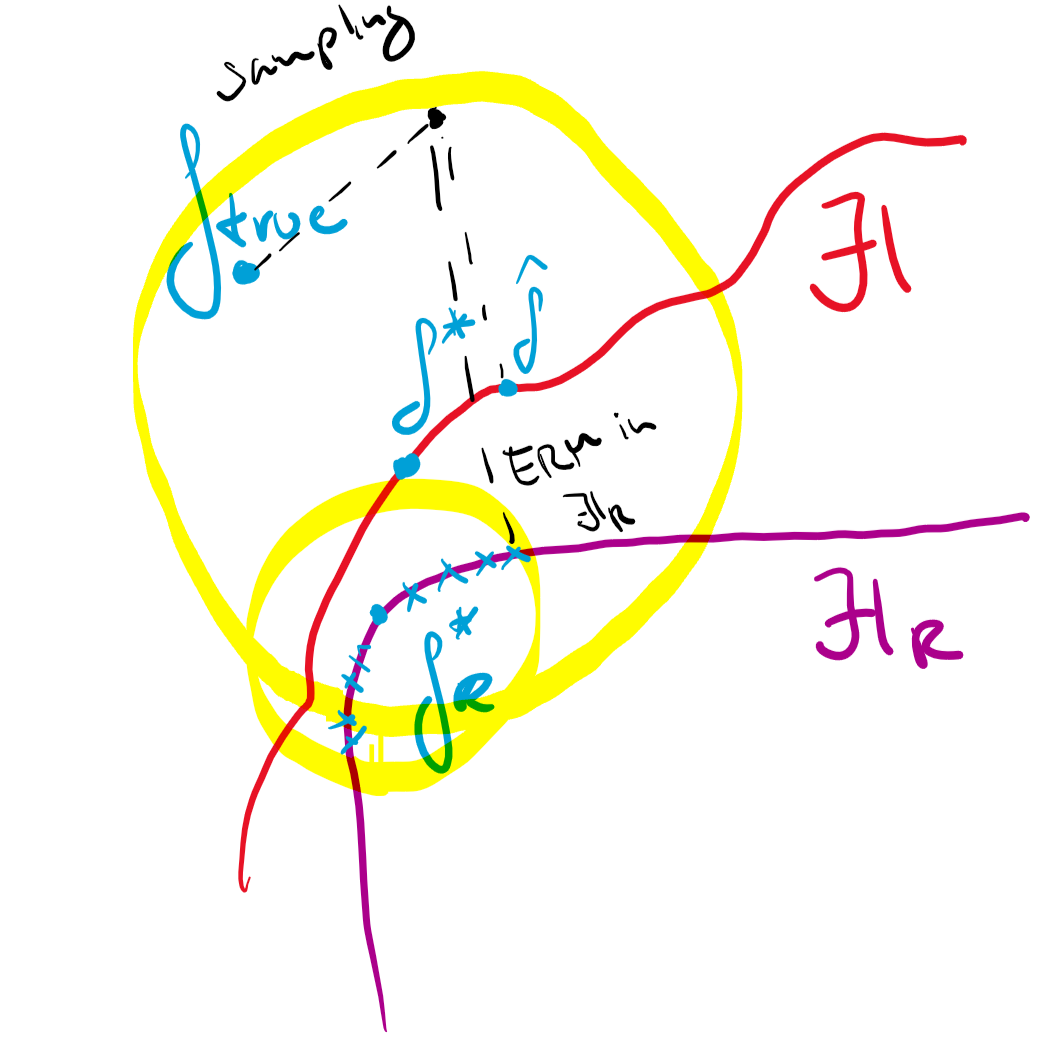 sampling
f true
ℋ
f*
f̂
ERM in
ℋ_R
f*_R
ℋ_R